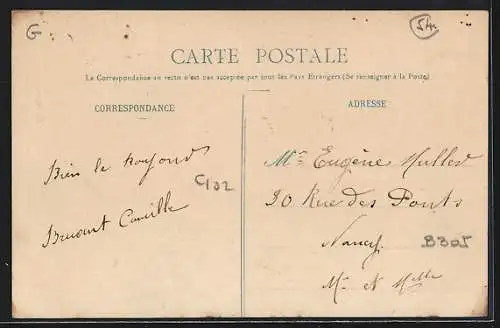 G
54
CARTE POSTALE
La Correspondance au recto n'est pas acceptée par tous les Pays Etrangers (Se renseigner à la Poste)
CORRESPONDANCE
ADRESSE
Bien le
Camille
C102
Mr Eugène Muller
30 Rue des Ponts
Nancy
B305
Mr et Melle